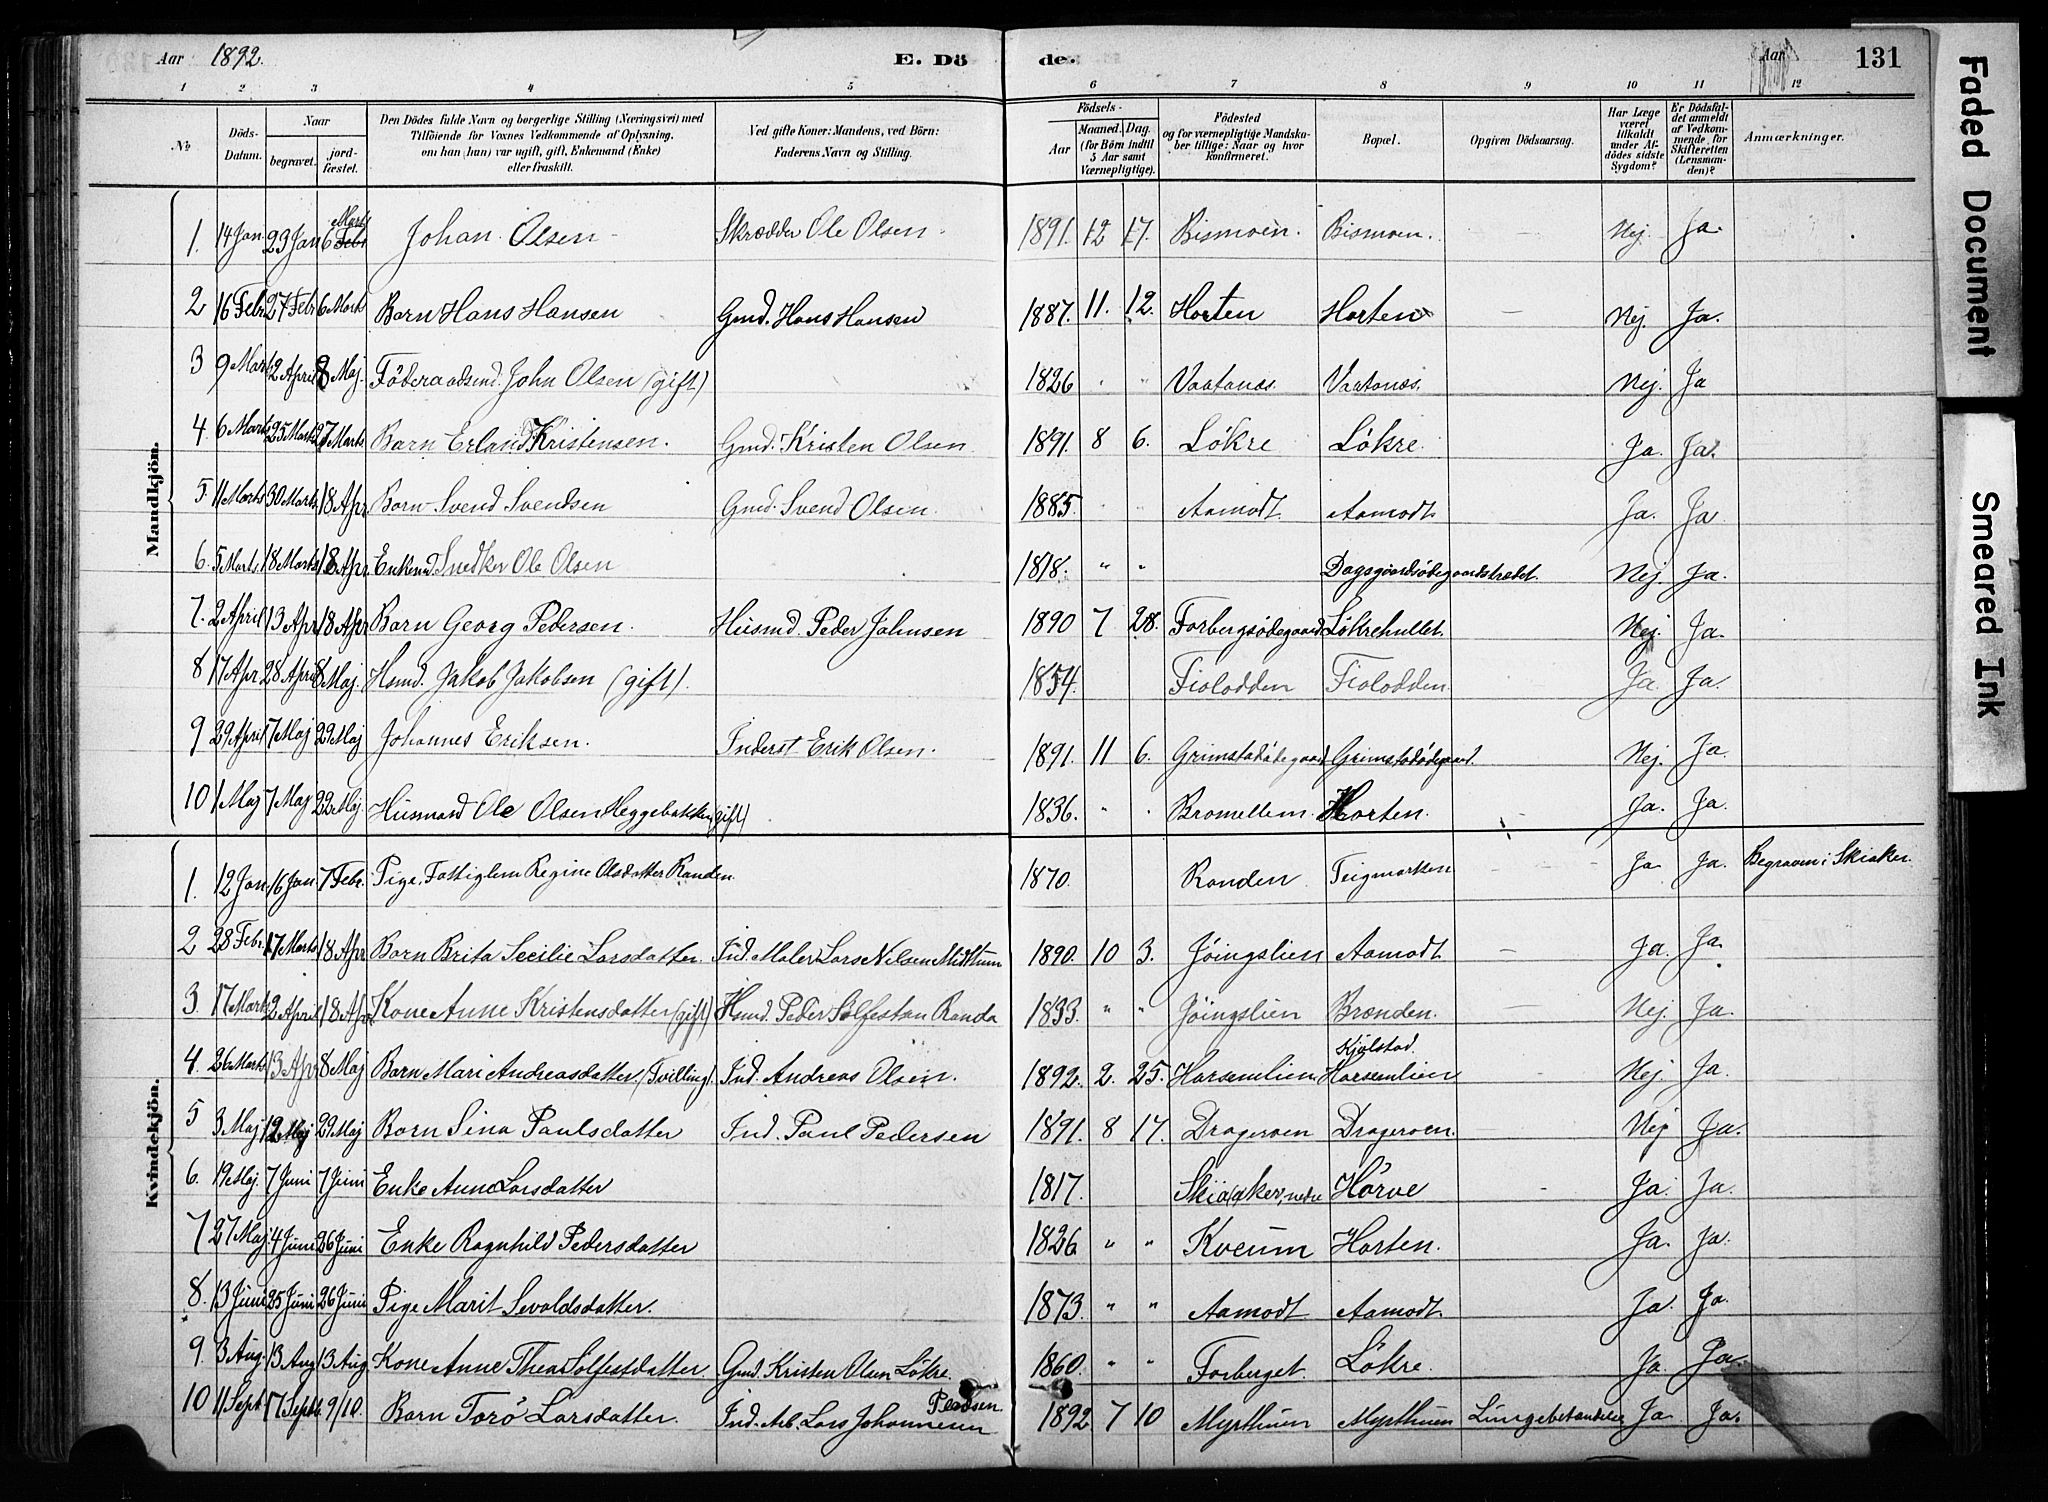 Aar 1892. E. Döde. Aar 131
1 2 3 4 5 6 7 8 9 10 11 12
№ Döds-Datum. Naar begravet. jordfæstet. Den Dödes fulde Navn og borgerlige Stilling (Næringsvei) med Tilföiende for Voxnes Vedkommende af Oplysning, om han (hun) var ugift, gift, Enkemand (Enke) eller fraskilt. Ved gifte Koner: Mandens, ved Börn: Faderens Navn og Stilling. Födsels- Aar Maaned. Dag. (for Börn indtil 5 Aar samt Værnepligtige). Födested og for værnepligtige Mandskaber tillige: Naar og hvor konfirmeret. Bopæl. Opgiven Dödsaarsag. Har Læge været tilkaldt under Afdödes sidste Sygdom? Er Dödsfaldet anmeldt af Vedkommende for Skifteretten (Lensmanden)? Anmærkninger.
Mandkjön.
1. 14 Jan. 23 Jan 6 Febr Marts Johan Olsen Skrædder Ole Olsen 1891. 12 17. Bismoen. Bismoen. Nej. Ja.
2 16 Febr 27 Febr 6 Marts Barn Hans Hansen Gmd. Hans Hansen 1887. 11. 12. Horten Horten — Nej. Ja.
3 9 Mart 2 April 8 Maj. Föderaadsmd. John Olsen (gift) 1826 " " Vaatanæs. Vaatanæs. Nej. Ja
4. 6 Marts 25 Marts 27 Marts Barn Erland Kristensen. Gmd. Kristen Olsen 1891. 8 6. Lökre Lökre. Ja. Ja.
5. 11 Marts 30 Marts 18 Apr. Barn Svend Svendsen Gmd. Svend Olsen. 1885. " " Aamodt. Aamodt. Ja. Ja
6. 5 Marts. 18 Marts 18 Apr. Enkemd Snedker Ole Olsen 1818. " " Dagsgaardsödegaardstrædet. Nej. Ja.
7. 2 April 13 Apr 18 Apr Barn Georg Pedersen. Husmd. Peder Johnsen 1890 7 28. Forbergsödegaard Lökrehullet. Nej. Ja.
8 17 Apr 28 April 8 Maj. Hsmd. Jakob Jakobsen (gift). 1854. Fiolodden Fiolodden. Ja. Ja.
9 29 April 7 Maj 29 Maj Johannes Eriksen. Inderst Erik Olsen. 1891. 11 6. Grimstadödegaard Grimstadödegaard. Nej. Ja.
10 1 Maj 7 Maj 22 Maj. Husmand Ole Olsen Heggebakken (gift) 1836. " " Bromellem. Horten. Ja. Ja.
Kvindekjön.
1. 12 Jan 16 Jan 7 Febr. Pige, Fattiglem Regine Olsdatter Randen 1870. Randen Teigmarken Ja Ja. Begraven i Skiaker.
2 28 Febr. 17 Marts 18 Apr Barn Brita Secilie Larsdatter. Ind. Maler Lars Nilsen Midthum 1890. 10 3. Jöingslien Aamodt. — Ja. Ja.
3. 17 Mart 2 April 18 Apr Kone Anne Kristensdatter (gift) Hsmd. Peder Solfestøn Randa 1833. " " Jöingslien Brænden. — Nej. Ja.
4. 26 Marts 13 Apr 8 Maj Barn Mari Andreasdatter (Tvilling). Ind. Andreas Olsen. 1892. 2. 25. Harsemlien Kjølstad. Harsemlien Nej. Ja.
5 3 Maj. 12 Maj 29 Maj Barn Sina Paulsdatter Ind. Paul Pedersen 1891. 8 17. Drageroen Drageroen. Nej Ja.
6. 19 Maj. 7 Juni 7 Juni Enke Anne Larsdatter 1817. Skiaaker, nedre Hörve Ja. Ja.
7 27 Maj. 4 Juni 26 Juni Enke Ragnhild Pedersdatter 1826 " " Kveum Horten. Ja. Ja.
8. 13 Juni 25 Juni 26 Juni Pige Marit Sevaldsdatter. 1873. " " Aamodt. Aamodt. Ja. Ja.
9. 3 Aug. 13 Aug 13 Aug. Kone Anne Thea Solfestdatter. Gmd. Kristen Olsen Lökre. 1860. " " Forberget. Lökre. Ja. Ja.
10 11 Sept. 17 Septb. 9/10. Barn Torö Larsdatter. Ind. Arb. Lars Johannesen 1892 7 10 Myrthuen Myrthuen Lungebetændelse Ja. Ja.
Faded Document
Smeared Ink